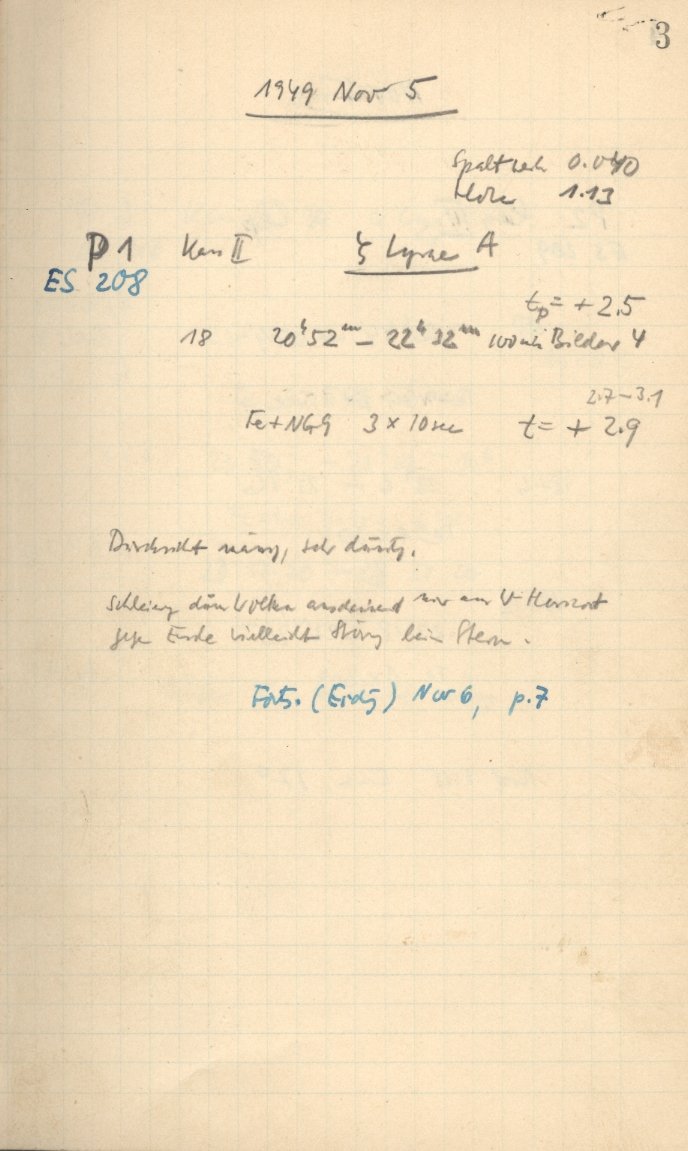 3
1949 Nov 5
Spalt 0.040
1.13
P1 Kass II ζ Lyrae A
ES 208
tp = + 2.5
18 20h52m – 22h32m Bilder 4
2.7–3.1
Fe+NG9 3 x 10 sec t = + 2.9
Durchsicht mässig, sehr dunstig.
Wolken anscheinend nur am W Horizont
gegen Ende vielleicht Störung beim Stern.
Forts. (Erdg) Nov 6, p.7